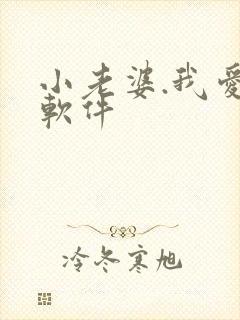 小老婆.我爱
軟件
冷冬寒旭